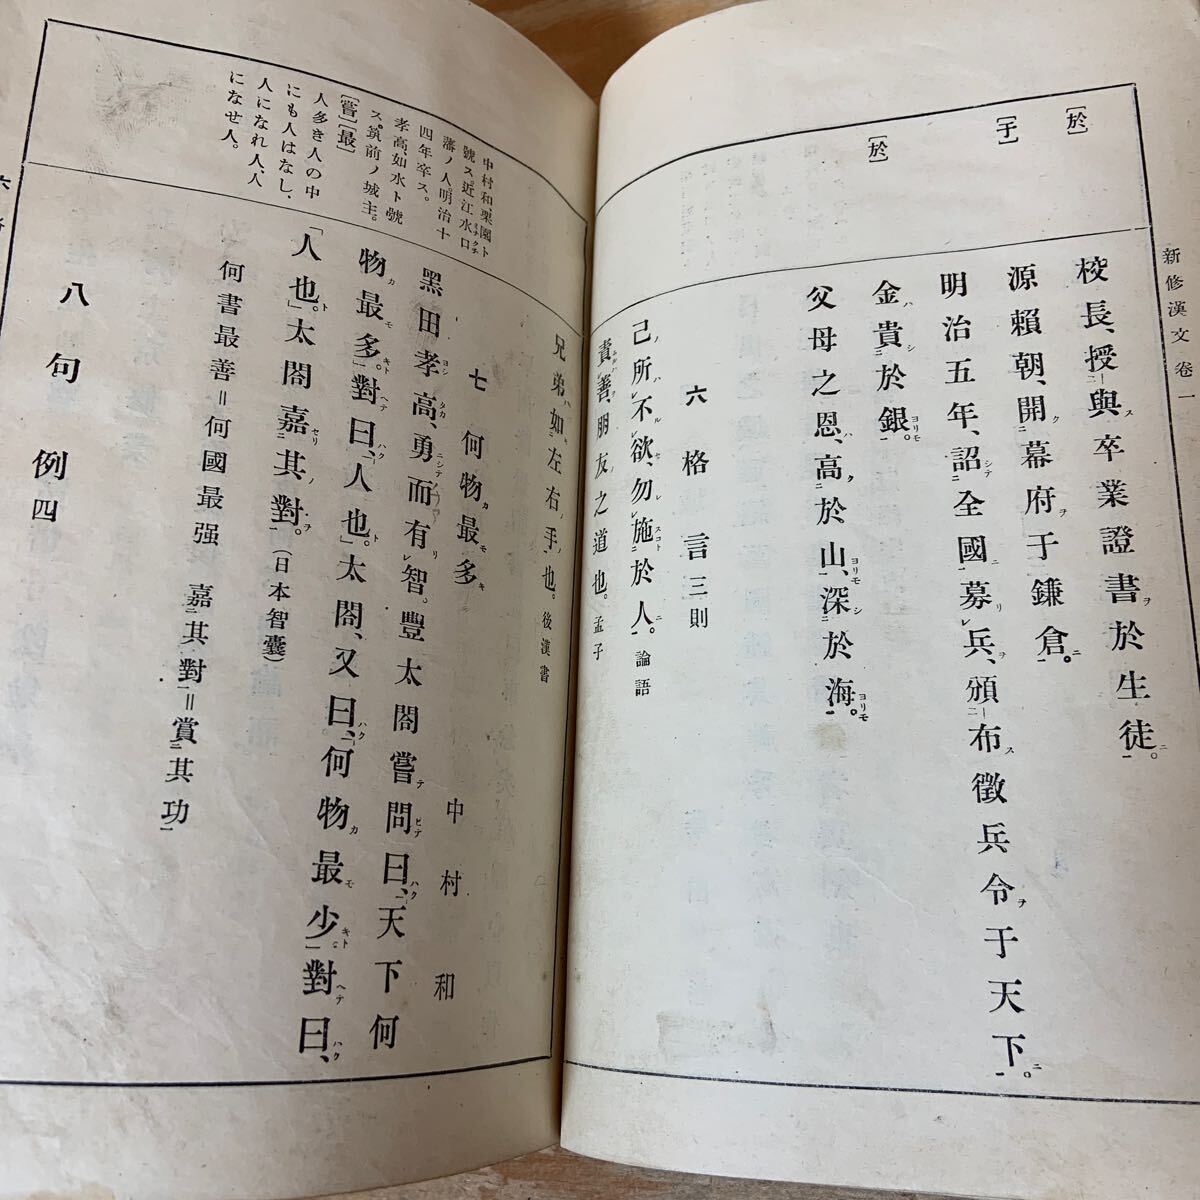 新修漢文卷一
〔於〕
〔于〕
〔於〕
校長、授與卒業證書於生徒。
源賴朝、開幕府于鎌倉。
明治五年、詔全國募兵、頒布徵兵令于天下。
金貴於銀。
父母之恩、高於山、深於海。
六 格言三則
己所不欲、勿施於人。論語
責善、朋友之道也。孟子
兄弟如左右手也。後漢書
中村和栗園ト
號ス。近江水口
藩ノ人、明治十
四年卒ス。
孝高、如水ト號
ス。筑前ノ城主。
〔嘗〕〔最〕
人多き人の中
にも人はなし、
人になれ人、人
になせ人。
七 何物最多
中村和
黑田孝高、勇而有智。豐太閤嘗問曰、天下何
物最多。」對曰、人也。」太閤、又曰、何物最少」對曰、
「人也。」太閤嘉其對。(日本智囊)
何書最善=何國最强 嘉其對=賞其功
八 句例四